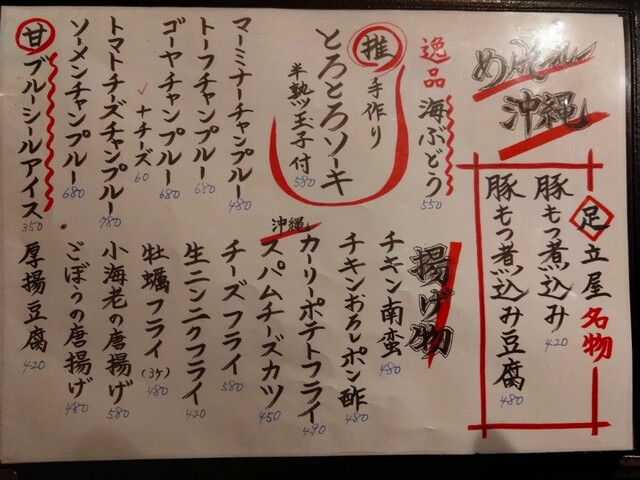 沖縄
足立屋名物
豚もつ煮込み 420
豚もつ煮込み豆腐 480
逸品
海ぶどう 550
推
手作り
とろとろソーキ
半熟玉子付 580
マーミナーチャンプルー 480
トーフチャンプルー 680
ゴーヤチャンプルー 680
+チーズ 60
トマトチーズチャンプルー 780
ソーメンチャンプルー 680
甘 ブルーシールアイス 350
揚げ物
チキン南蛮 480
チキンおろしポン酢 480
カーリーポテトフライ 490
沖縄
スパムチーズカツ 450
チーズフライ 580
生ニンニクフライ 420
牡蠣フライ(3ケ) 480
小海老の唐揚げ 580
ごぼうの唐揚げ 480
厚揚豆腐 420